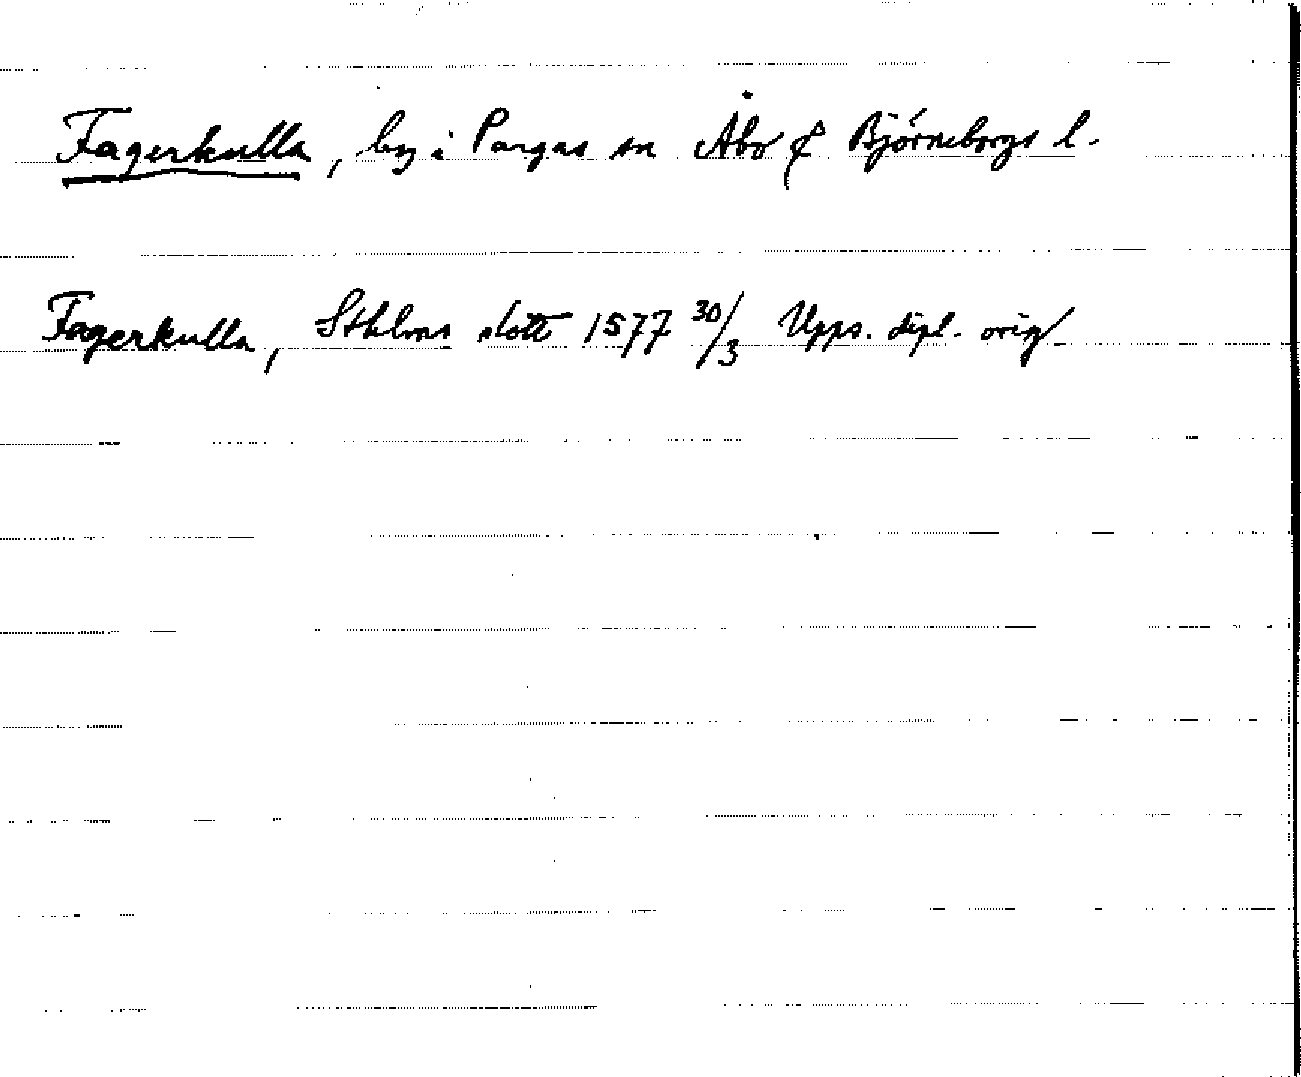 Fagerkulla, by i Pargas sn Åbo & Björneborgs l.
Fagerkulla, Sthlms slott 1577 30/3 Upps. dipl. orig